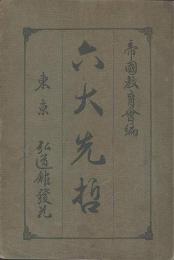 帝國教育會編
六大先哲
東京 弘道館發兌